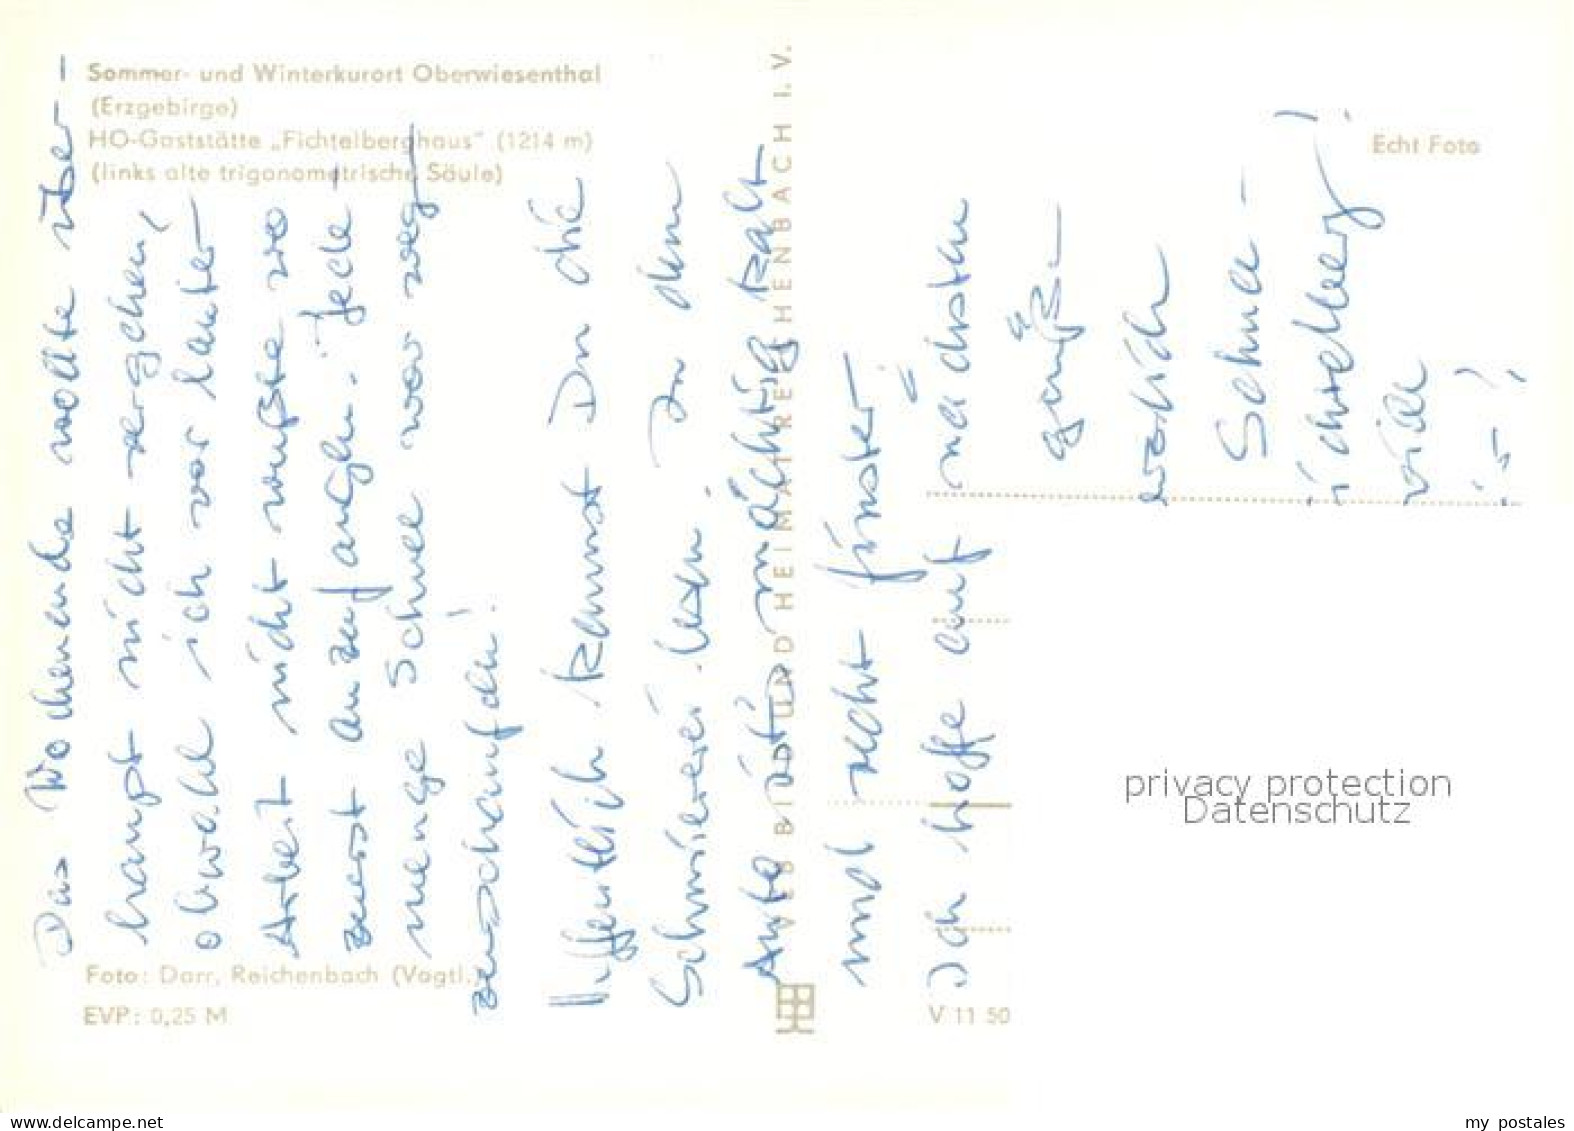 Sommer- und Winterkurort Oberwiesenthal
(Erzgebirge)
HO-Gaststätte „Fichtelberghaus" (1214 m)
(links alte trigonometrische Säule)
Echt Foto
Das Wochenende wollte über-
haupt nicht vergehen,
obwohl ich vor lauter
Arbeit nicht wußte wo
zuerst anzufangen. Jede-
menge Schnee war weg-
zuschaufeln!
Hoffentlich kannst Du die
Schmiererei lesen. In dem
Auto ist's mächtig kalt
und recht finster
Ich hoffe auf nächsten
VEB BILD UND HEIMAT REICHENBACH I. V.
Foto: Darr, Reichenbach (Vogtl.)
EVP: 0,25 M
V 11 50
privacy protection
Datenschutz
akpool.de
my postales